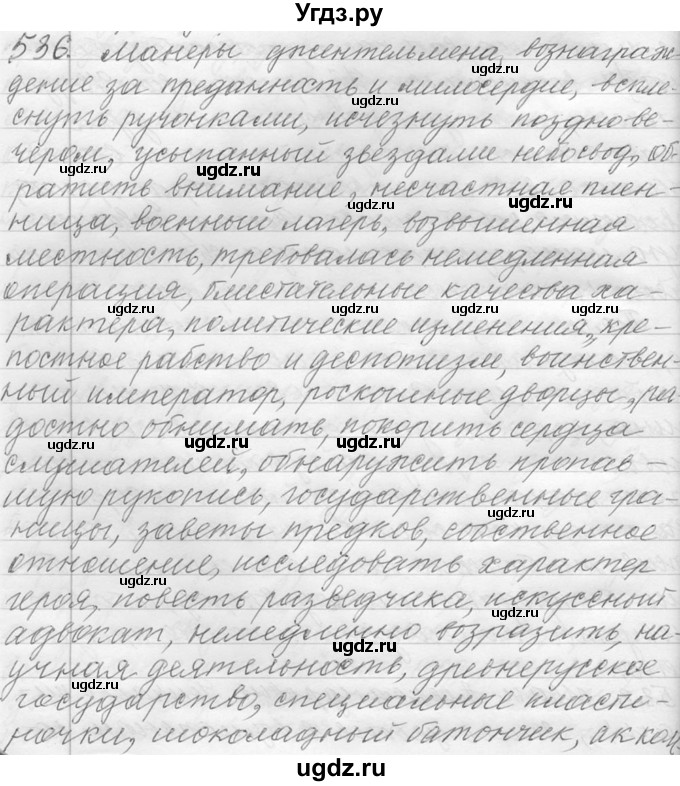 Угдз.ру
536. Манеры джентельмена, вознаграж-
дение за преданность и милосердие, вспле-
снуть ручонками, исчезнуть поздно ве-
чером, усыпанный звездами небосвод, об-
ратить внимание, несчастная плен-
ница, военный лагерь, возвышенная
местность, требовалась немедленная
операция, блистательные качества ха-
рактера, политические изменения, кре-
постное рабство и деспотизм, воинствен-
ный император, роскошные дворцы, ра-
достно обнимать, покорить сердца
слушателей, обнаружить пропав-
шую рукопись, государственные гра-
ницы, заветы предков, собственное
отношение, исследовать характер
героя, повесть разведчика, искусный
адвокат, немедленно возразить, на-
учная деятельность, древнерусское
государство, специальные пласти-
ночки, шоколадный батончик, акком
ugdz.ru